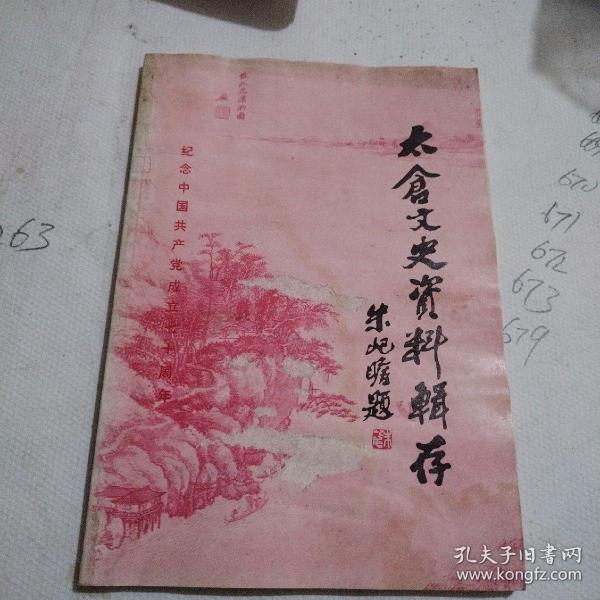 太倉文史資料輯存
朱屺瞻題
纪念中国共产党成立七十周年
63
670
671
672
673
679
孔夫子旧书网
www.kongfz.com